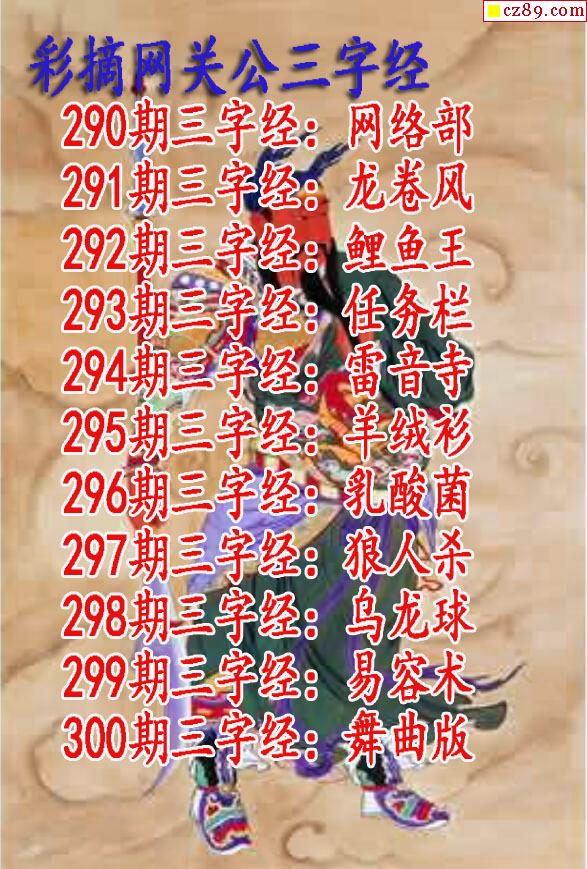 cz89.com
彩摘网关公三字经
290期三字经：网络部
291期三字经：龙卷风
292期三字经：鲤鱼王
293期三字经：任务栏
294期三字经：雷音寺
295期三字经：羊绒衫
296期三字经：乳酸菌
297期三字经：狼人杀
298期三字经：乌龙球
299期三字经：易容术
300期三字经：舞曲版